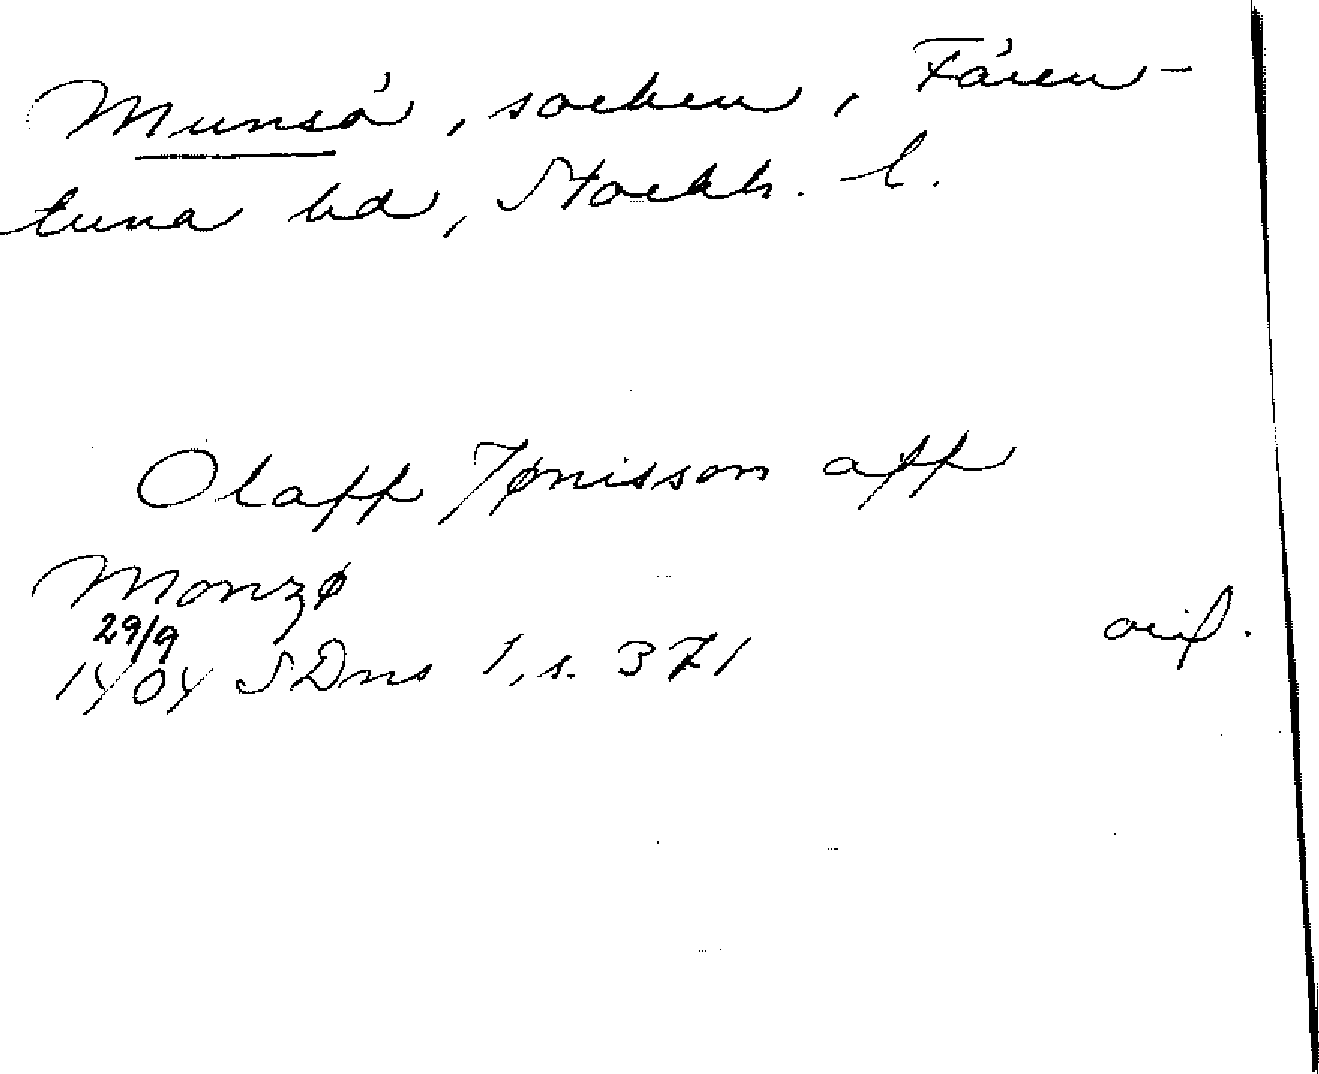 Munsö, socken, Fären-
tuna hd, Stockh. l.
Olaff Jønisson aff
Monzø
29/9
1404 SDns 1, s. 371
orig.